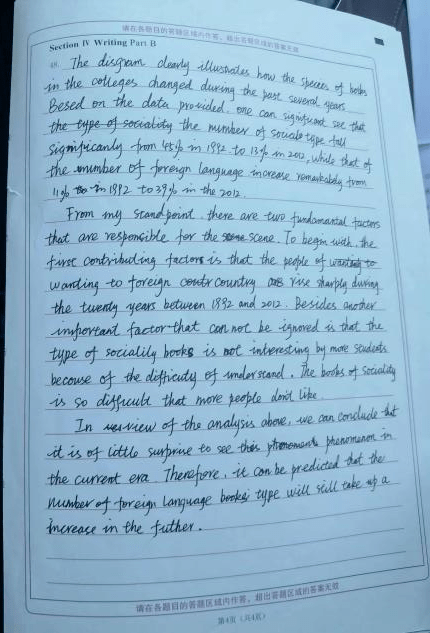 请在各题目的答题区域内作答，超出答题区域的答案无效
Section IV Writing Part B
48. The disgram clearly illustrates how the speces of books
in the colleges changed during the past several years.
Besed on the data provided, one can significant see that
the type of sociality the number of social type fall
significanly from 45% in 1992 to 13% in 2012, while that of
the number of foreign language increase remarkably from
11% to in 1992 to 39% in the 2012.
From my standpoint, there are two fundamantal factors
that are responsible for the scene. To begin with, the
first contributing factors is that the people of wanting to
wanting to foreign country rise sharply during
the twenty years between 1992 and 2012. Besides another
important factor that can not be ignored is that the
type of sociality books is not interesting by more students
because of the difficuty of understand. The books of sociality
is so difficult that more people don't like.
In view of the analysis above, we can conclude that
it is of little surprise to see this phenomenon in
the current era. Therefore, it can be predicted that the
number of foreign language books type will still take up a
increase in the futher.
请在各题目的答题区域内作答，超出答题区域的答案无效
第4页（共4页）